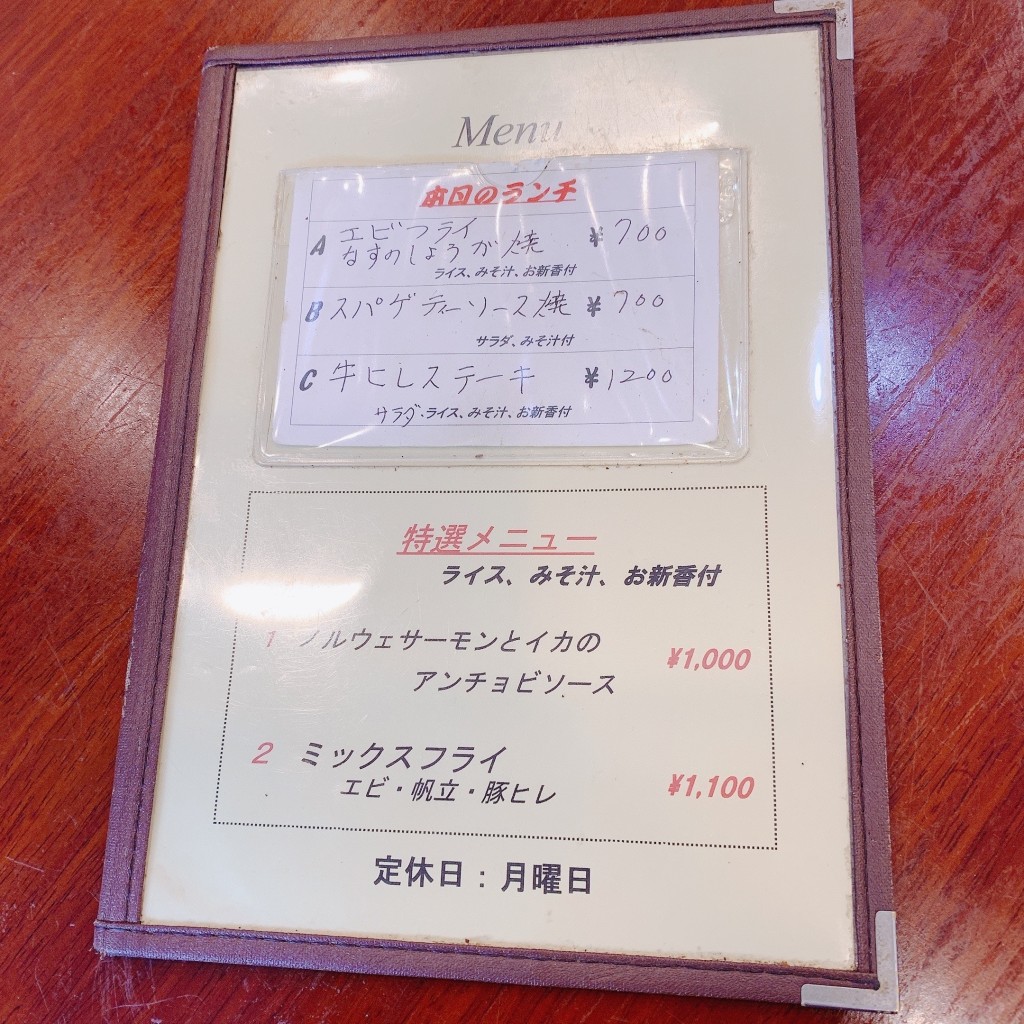 Menu
本日のランチ
A エビフライ
なすのしょうが焼 ¥700
ライス、みそ汁、お新香付
B スパゲティーソース焼 ¥700
サラダ、みそ汁付
C 牛ヒレステーキ ¥1200
サラダ・ライス、みそ汁、お新香付
特選メニュー
ライス、みそ汁、お新香付
1 ノルウェサーモンとイカの
アンチョビソース ¥1,000
2 ミックスフライ
エビ・帆立・豚ヒレ ¥1,100
定休日：月曜日